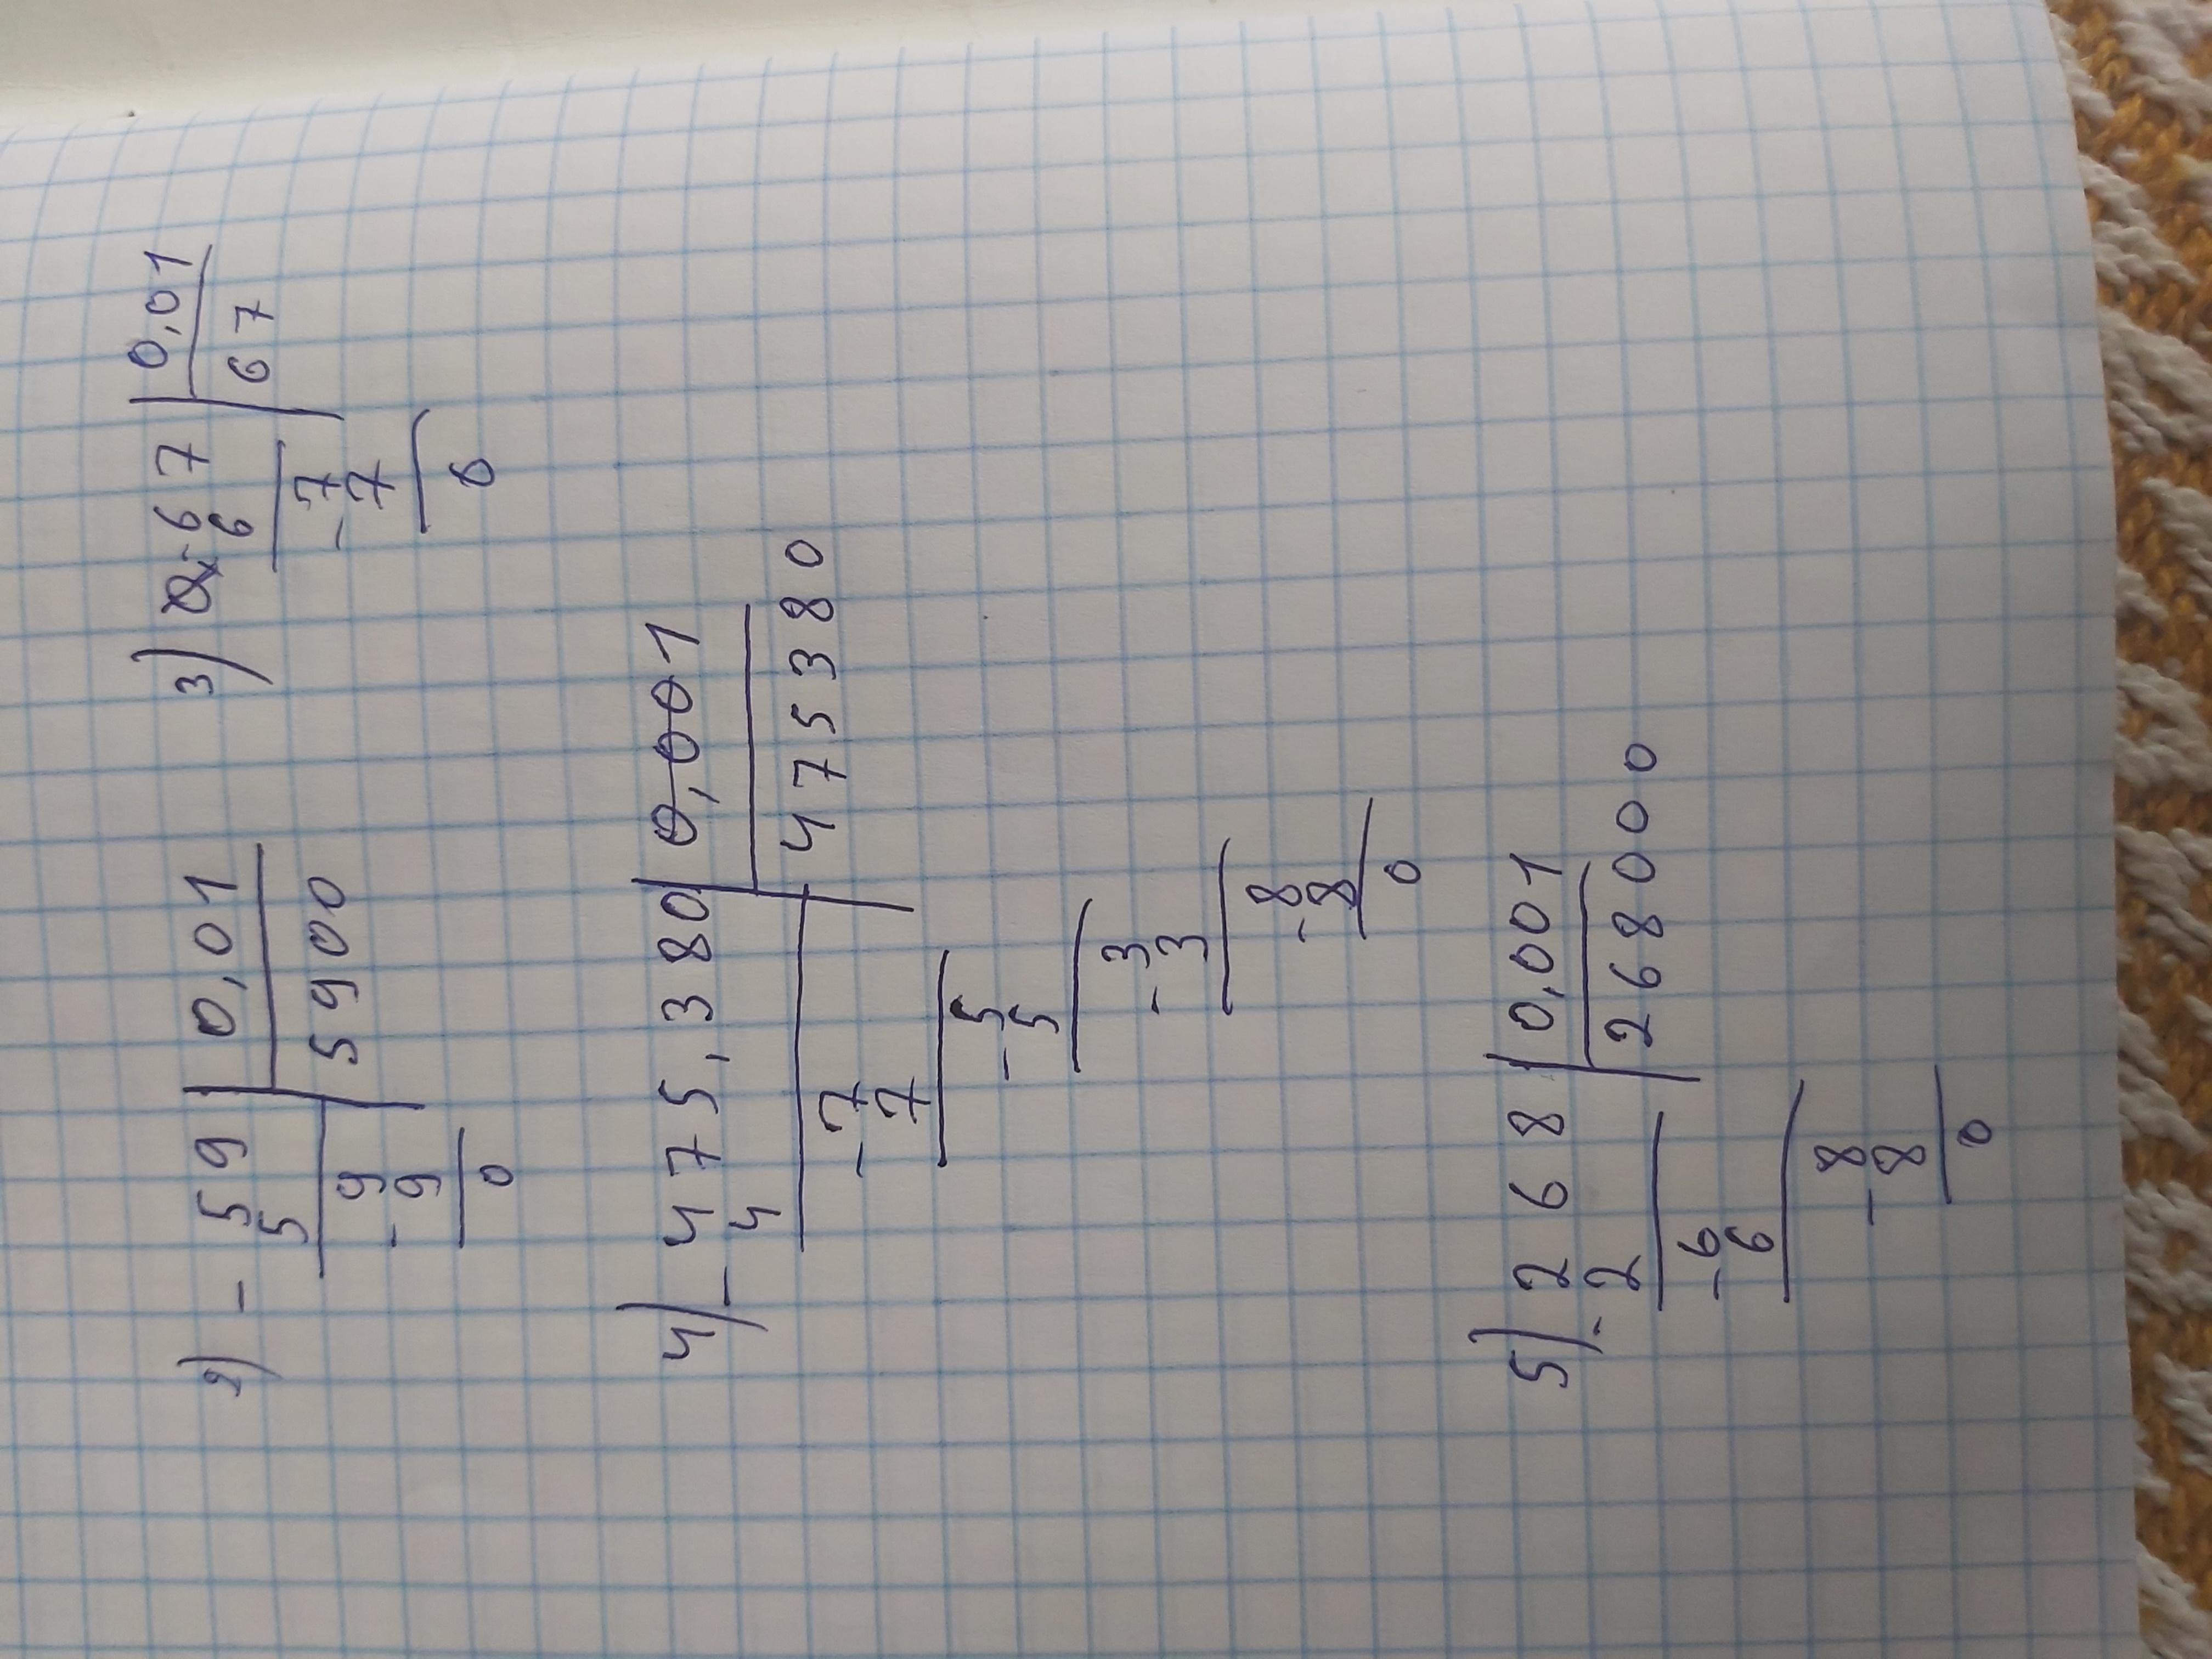 2) - 59 | 0,01
5 | 5900
- 9
9
0
3) 0,67 | 0,01
6 | 67
- 7
7
0
4) - 475,380 | 0,001
4 | 475380
- 7
7
- 5
5
- 3
3
- 8
8
0
5) - 268 | 0,001
2 | 268000
- 6
6
- 8
8
0